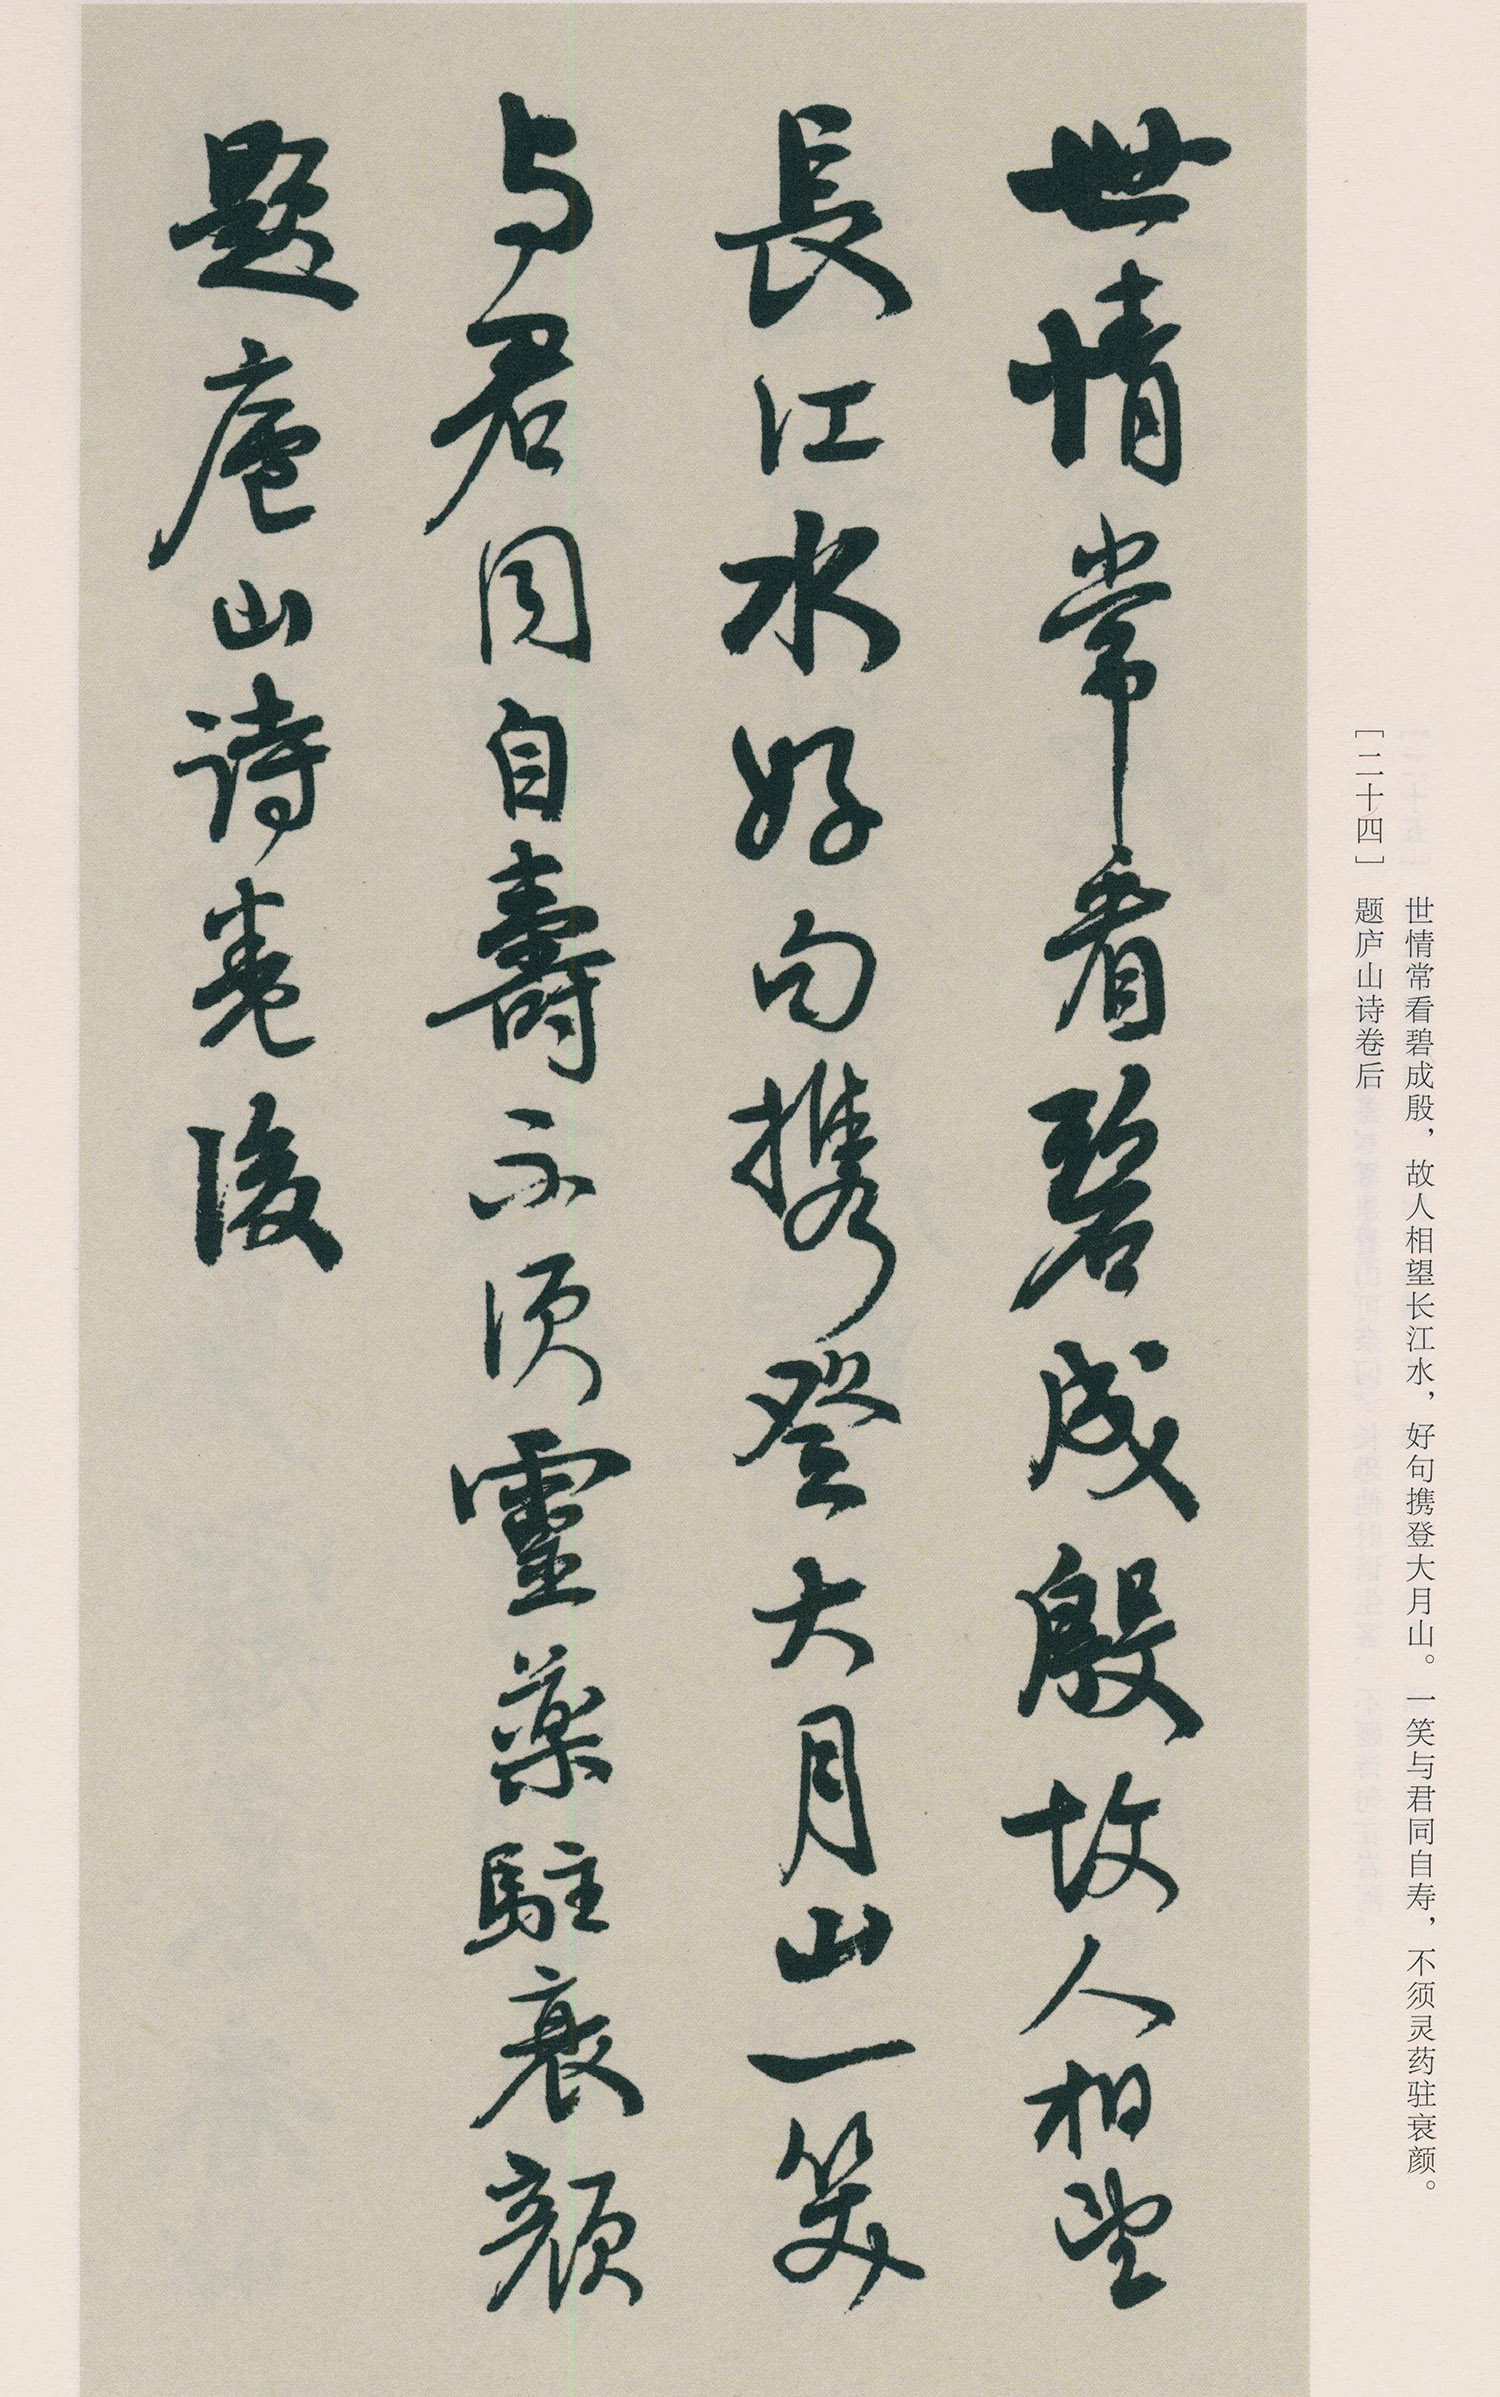 世情常看碧成殷，故人相望长江水，好句携登大月山。一笑与君同自寿，不须灵药驻衰颜。
［二十四］ 题庐山诗卷后
世情常看碧成殷故人相望
長江水好句携登大月山一笑
与君同自壽不須靈藥駐衰顏
題廬山詩卷後